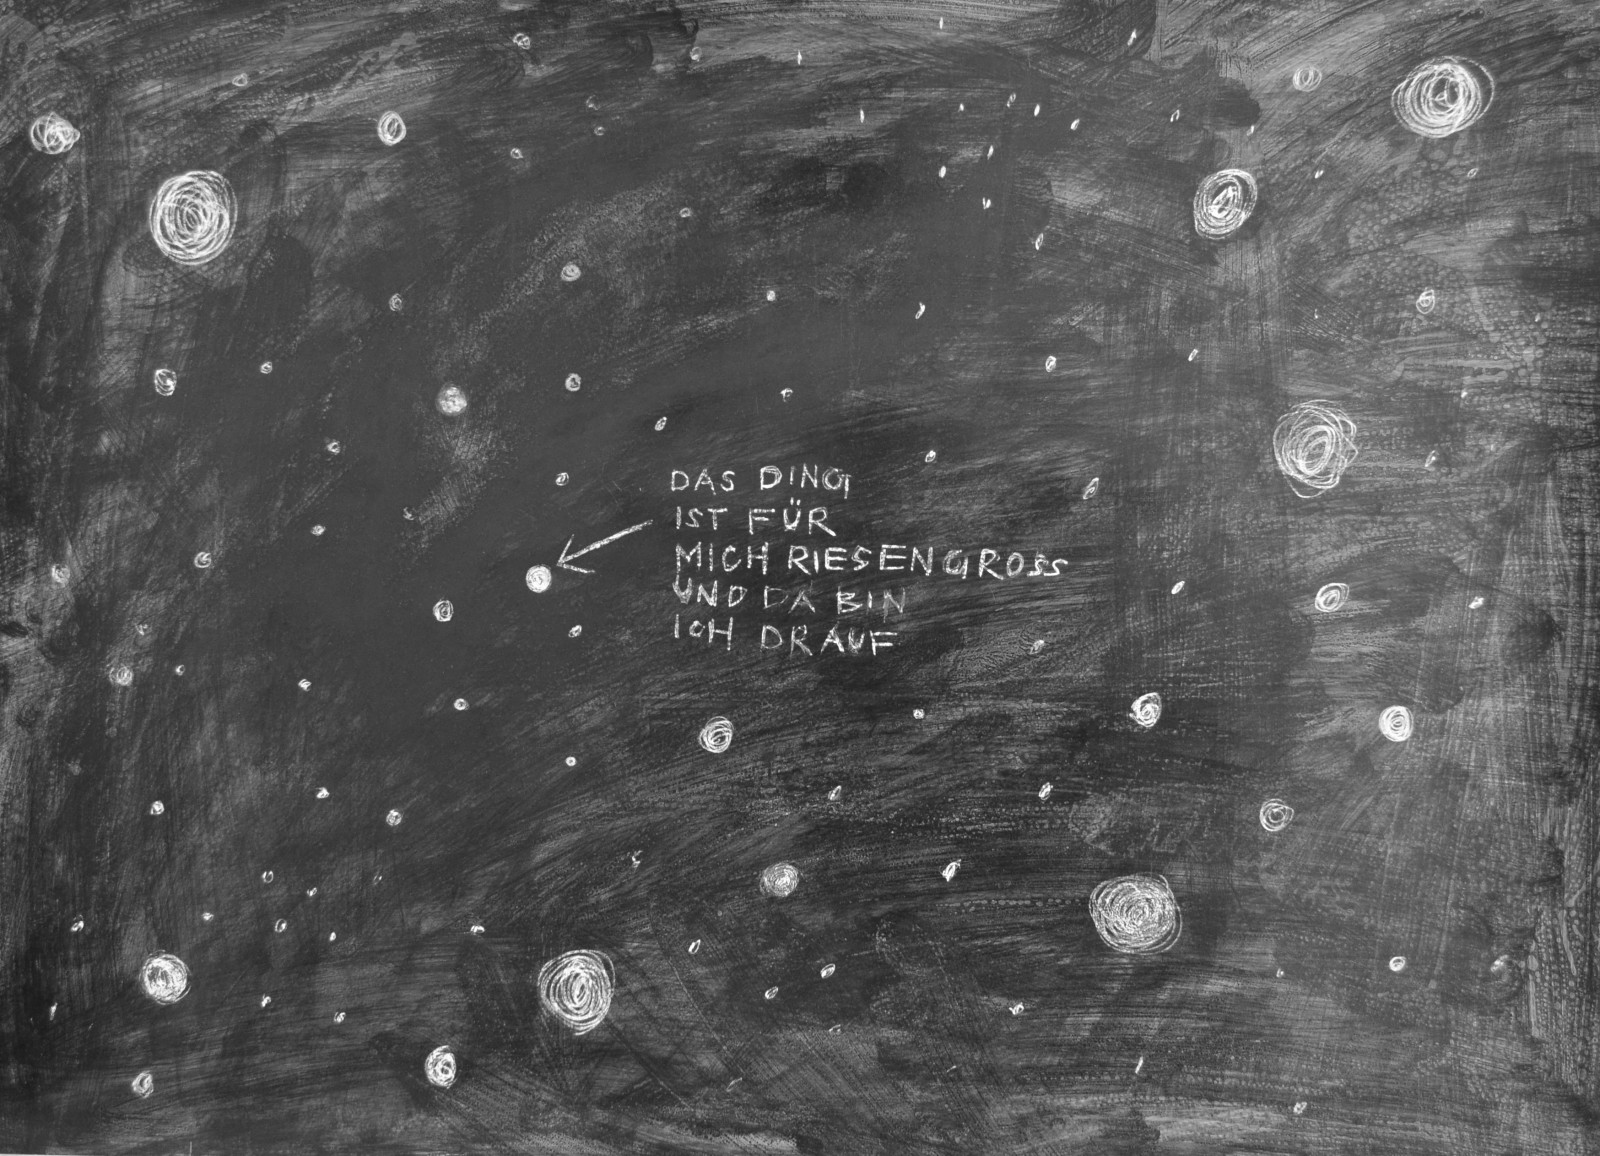 DAS DING
IST FÜR
MICH RIESENGROSS
UND DA BIN
ICH DRAUF